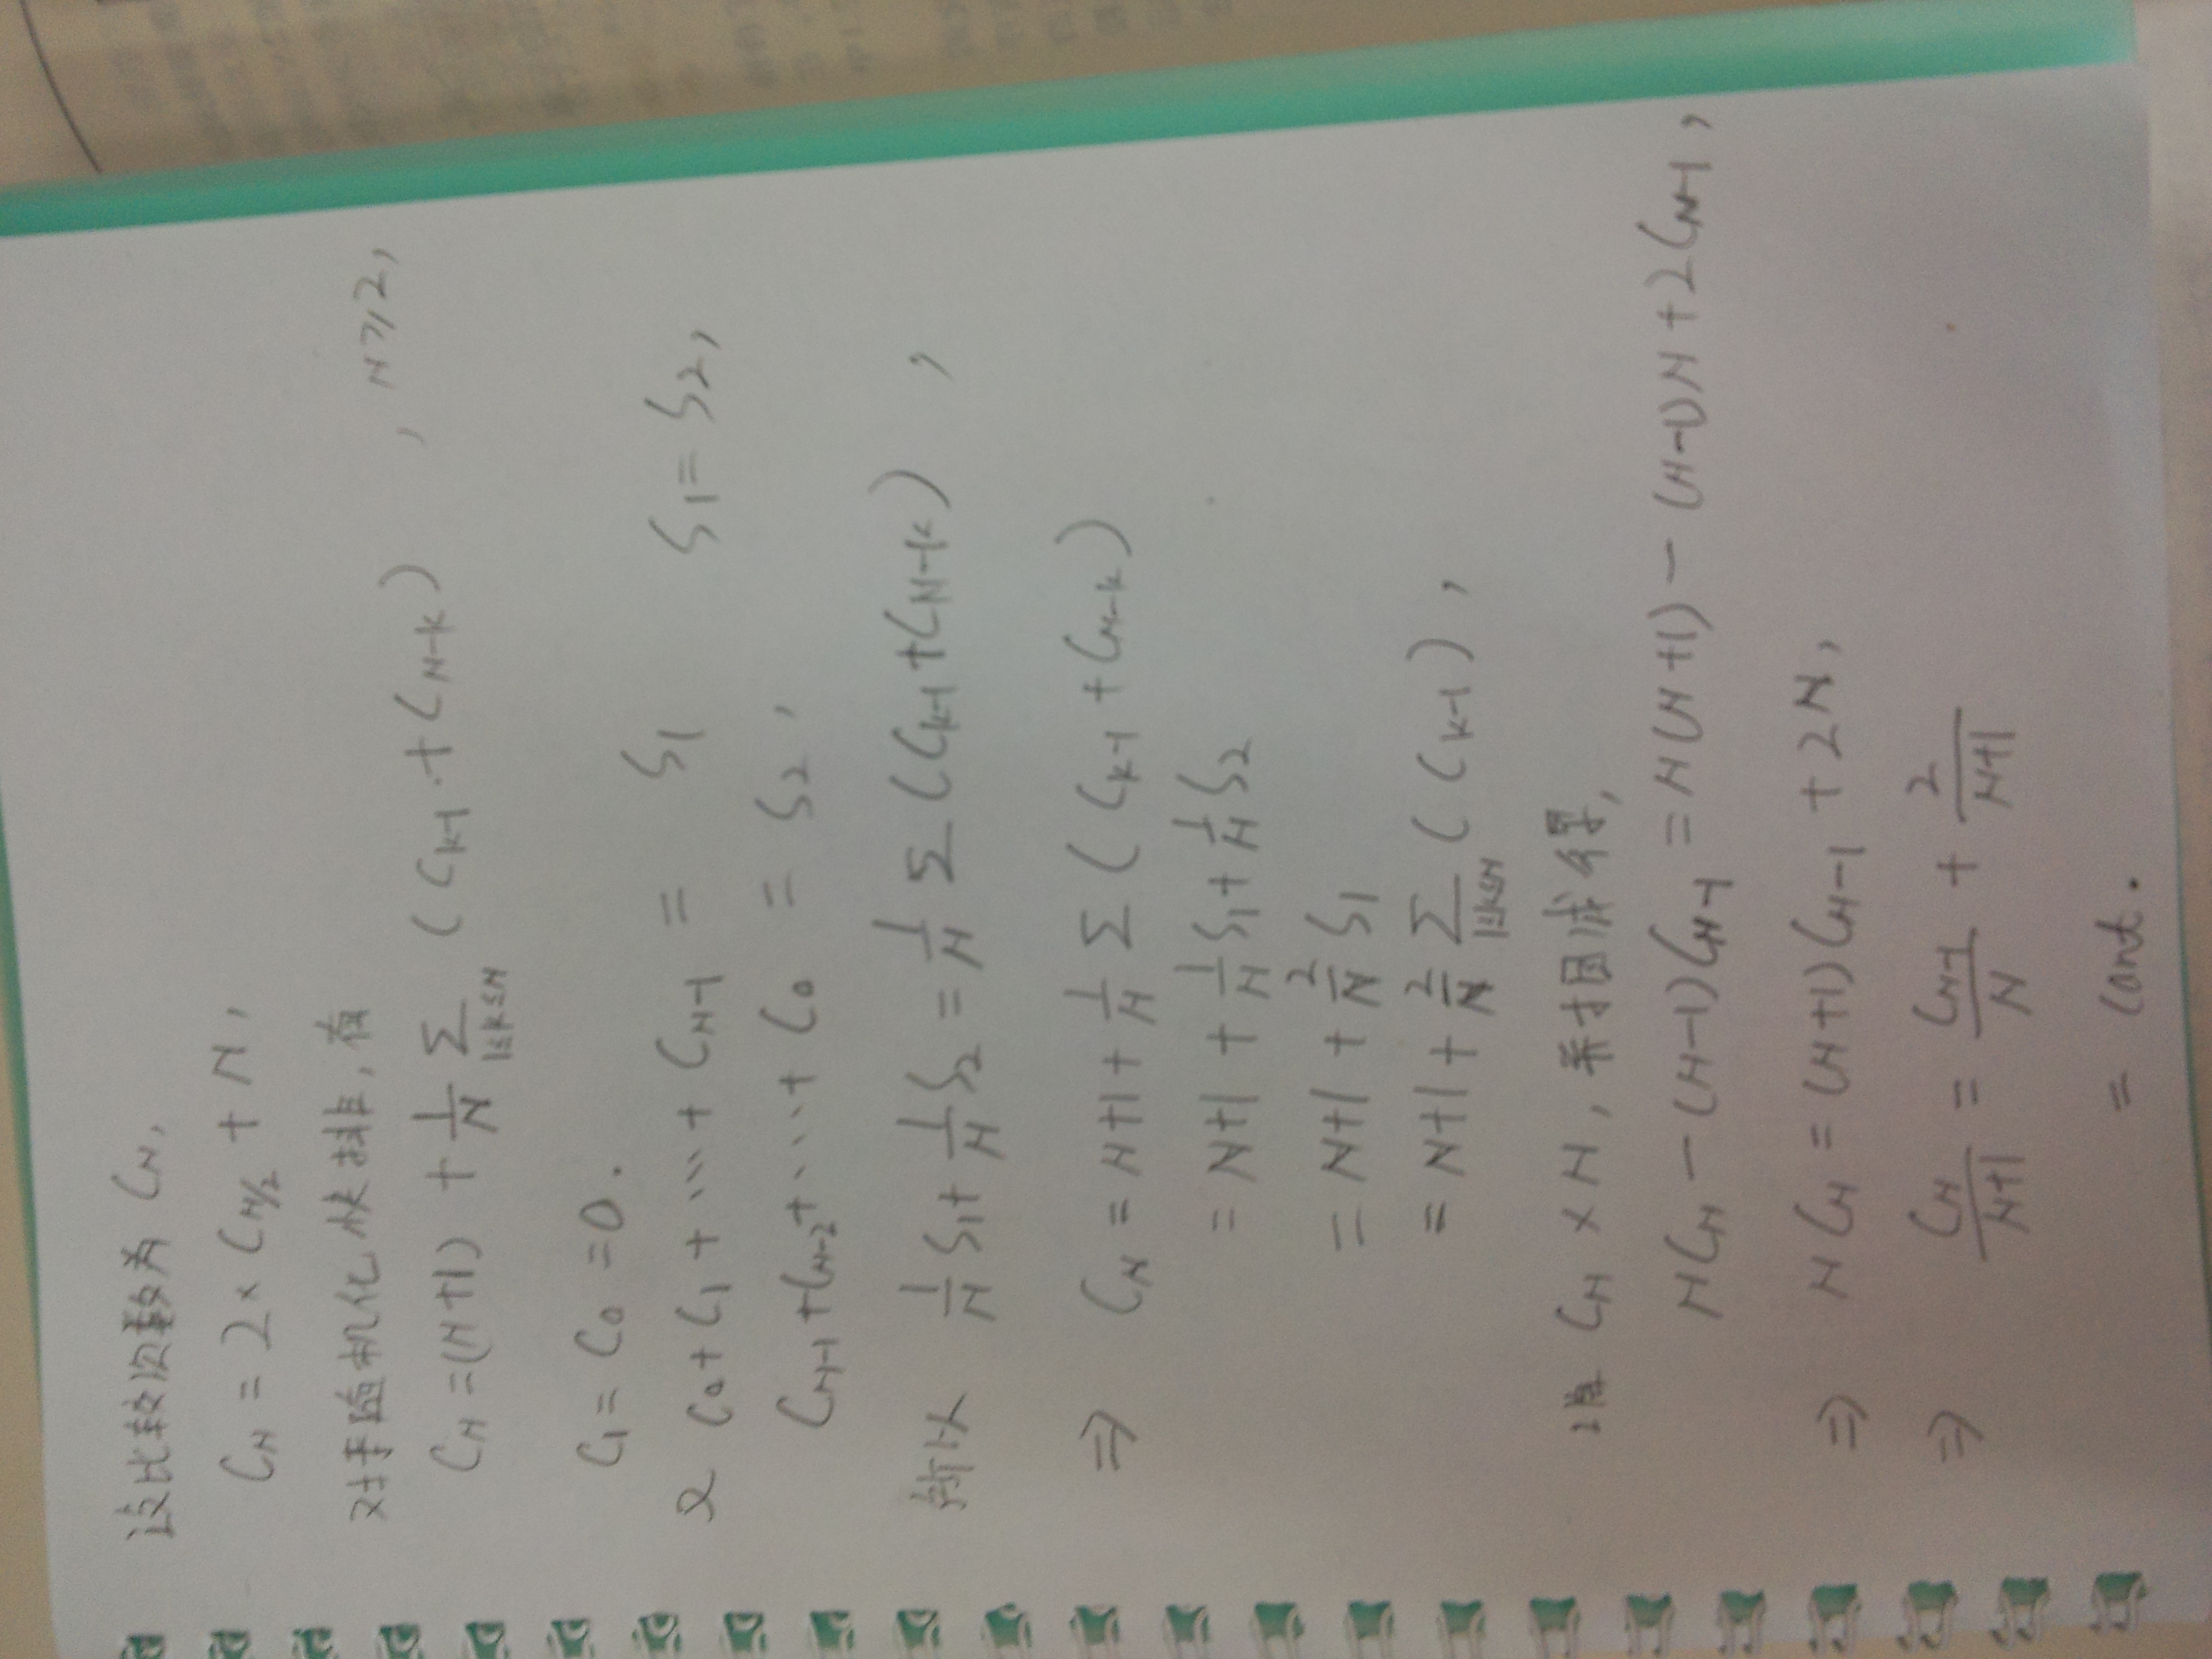 设比较次数为 C_N,
C_N = 2 × C_{N/2} + N,
对于随机化快排, 有
C_N = (N+1) + \frac{1}{N} \sum_{1≤k≤N} (C_{k-1} + C_{N-k}) , N≥2,
C_1 = C_0 = 0.
又 C_0 + C_1 + ... + C_{N-1} = S_1 S_1 = S_2,
C_{N-1} + C_{N-2} + ... + C_0 = S_2,
所以 \frac{1}{N} S_1 + \frac{1}{N} S_2 = \frac{1}{N} Σ (C_{k-1} + C_{N-k}) ,
⇒ C_N = N+1 + \frac{1}{N} Σ (C_{k-1} + C_{N-k})
= N+1 + \frac{1}{N} S_1 + \frac{1}{N} S_2
= N+1 + \frac{2}{N} S_1
= N+1 + \frac{2}{N} \sum_{1≤k≤N} (C_{k-1}) ,
C_N × N, 并相减得,
N C_N - (N-1) C_{N-1} = N(N+1) - (N-1)N + 2 C_{N-1},
⇒ N C_N = (N+1) C_{N-1} + 2N,
⇒ \frac{C_N}{N+1} = \frac{C_{N-1}}{N} + \frac{2}{N+1}
= cont.